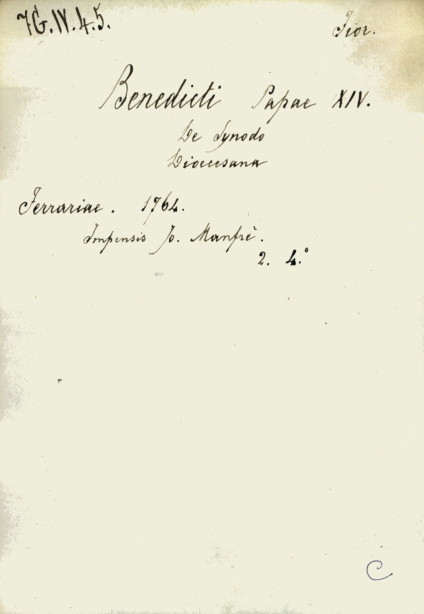 7G.IV.4.5.
Fior.
Benedicti Papae XIV.
De Synodo
Dioecesana
Ferrariae. 1764.
Impensis Jo. Manfrè.
2. 4.°
C